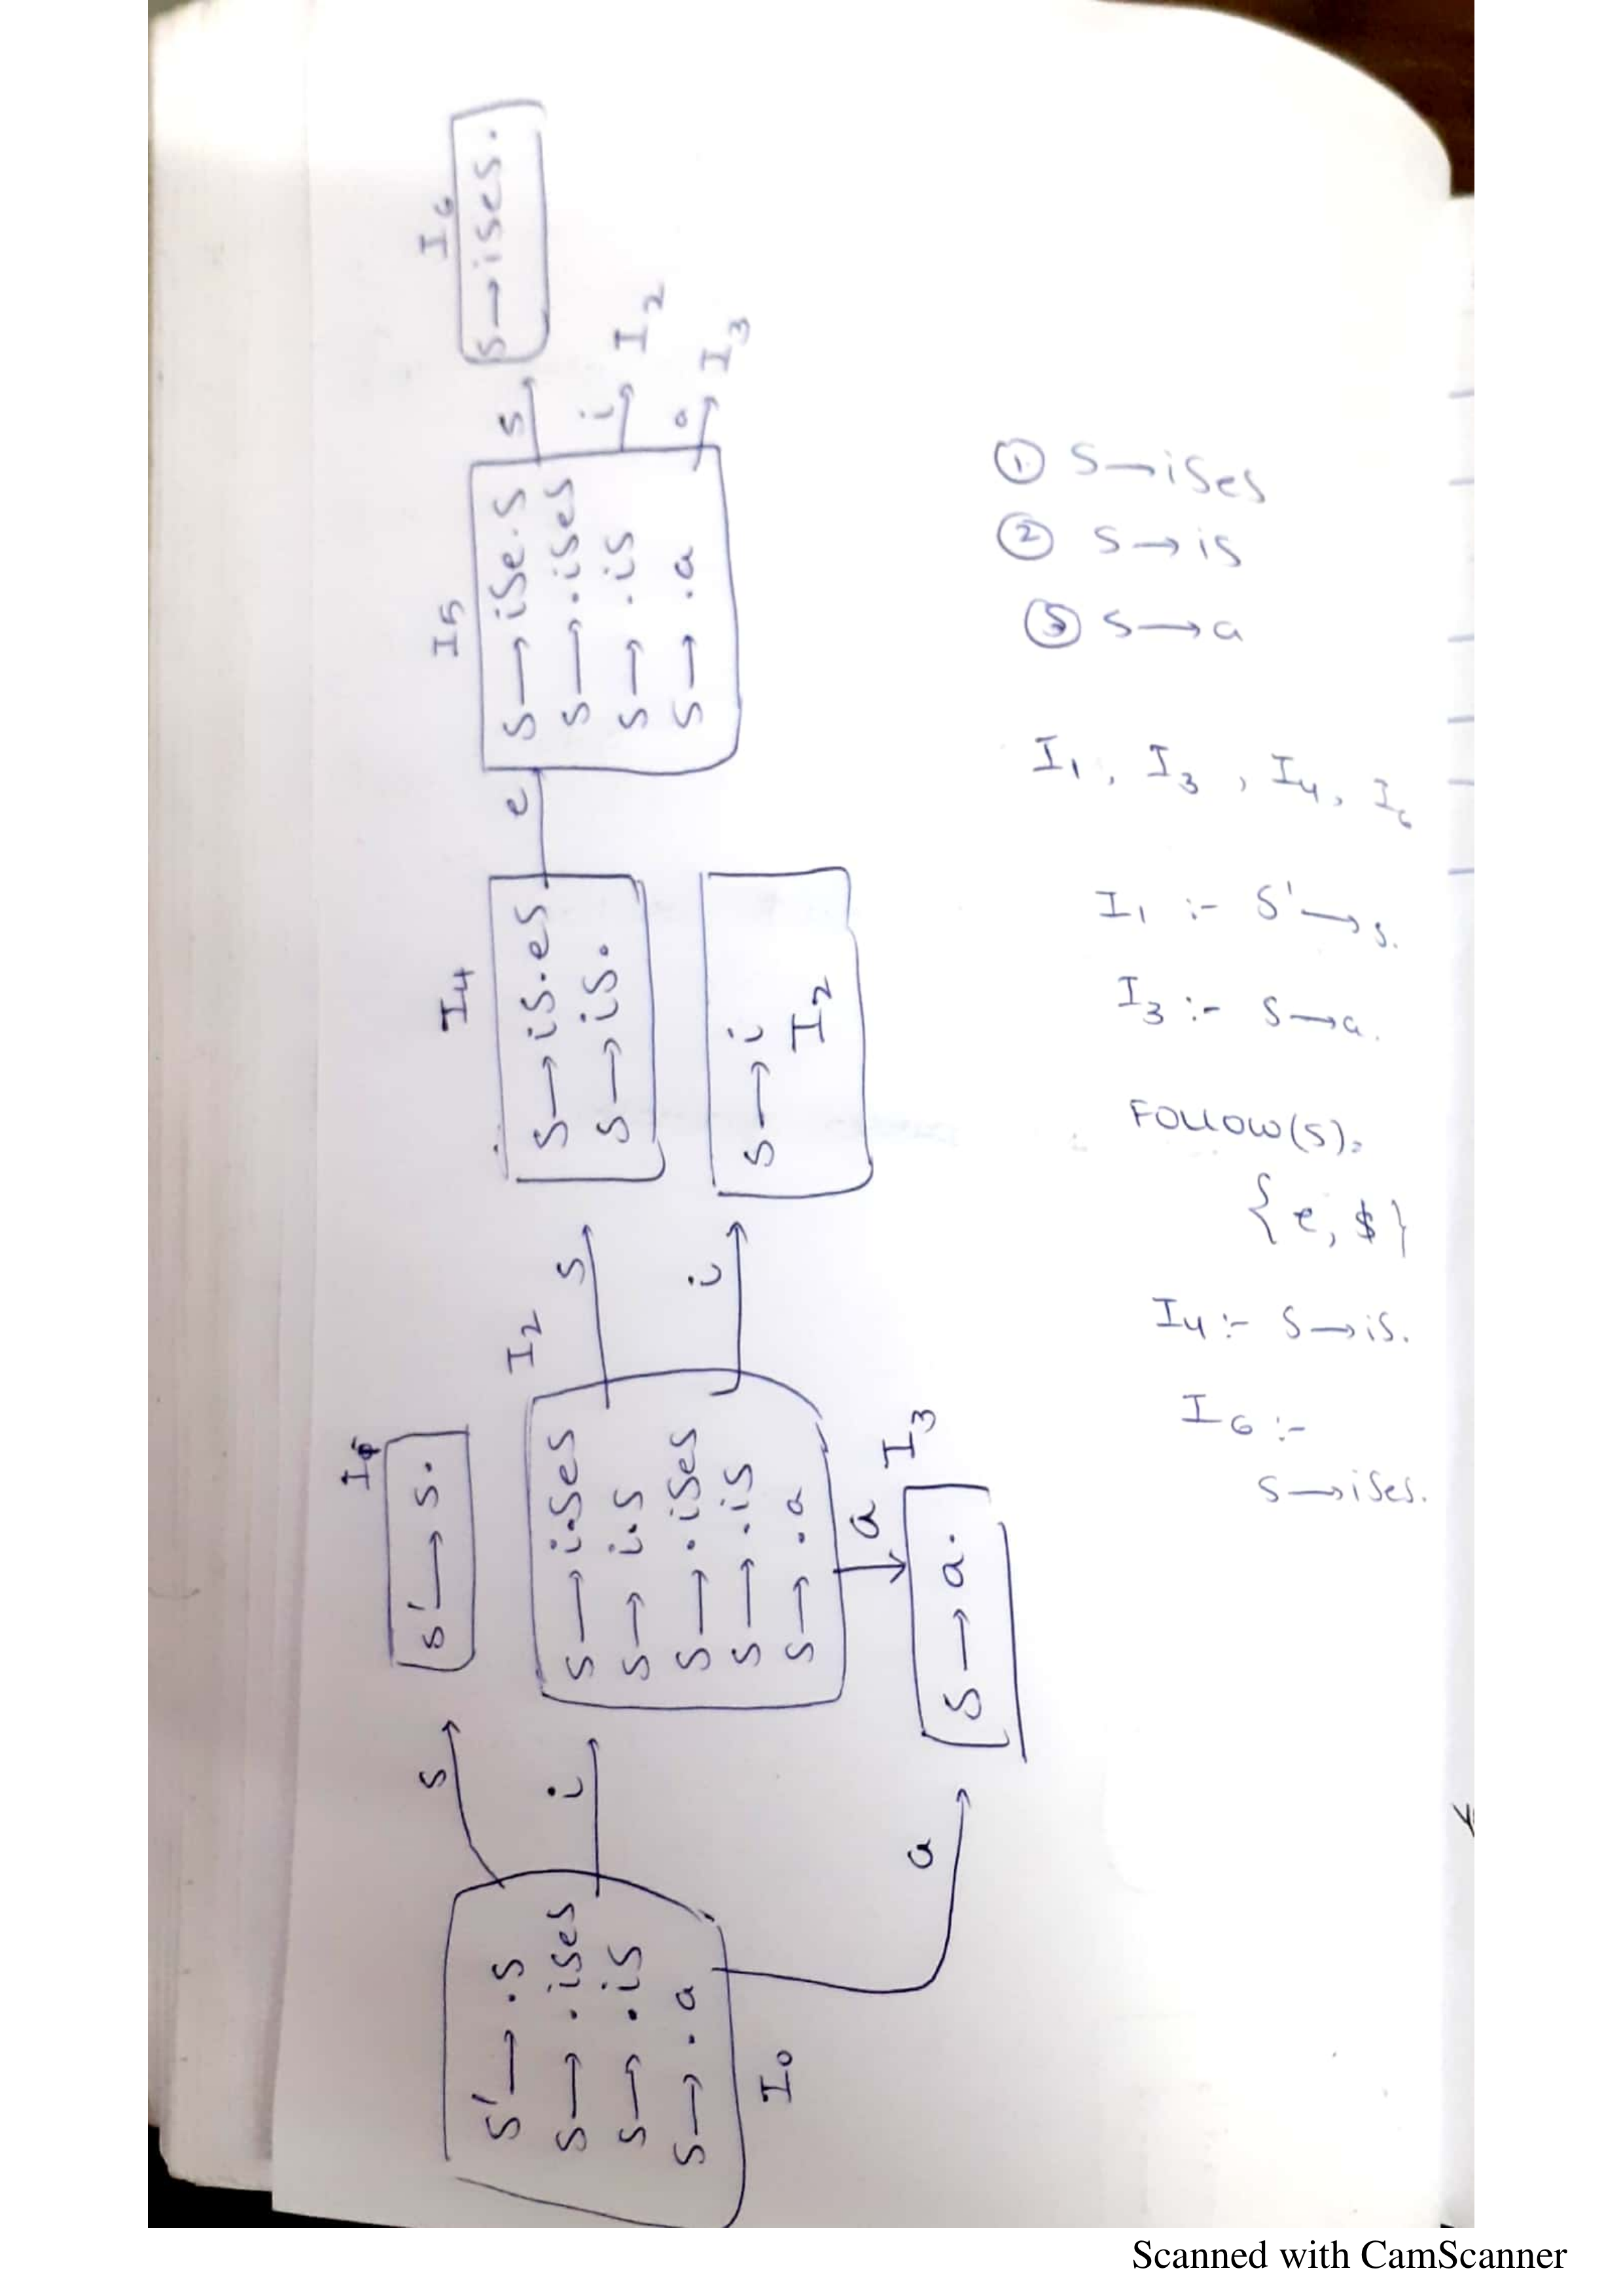 I0
S' → .S
S → .iSeS
S → .iS
S → .a
S
i
a
I1
S' → S.
I2
S → i.SeS
S → i.S
S → .iSeS
S → .iS
S → .a
a
I3
S → a.
S
i
I4
S → iS.eS
S → iS.
S → i
I2
e
I5
S → iSe.S
S → .iSeS
S → .iS
S → .a
S
i
a
I6
S → iSeS.
I2
I3
① S → iSeS
② S → iS
③ S → a
I1, I3, I4, I6
I1 :- S' → S.
I3 :- S → a.
FOLLOW(S) =
{e, $}
I4 :- S → iS.
I6 :-
S → iSeS.
Scanned with CamScanner